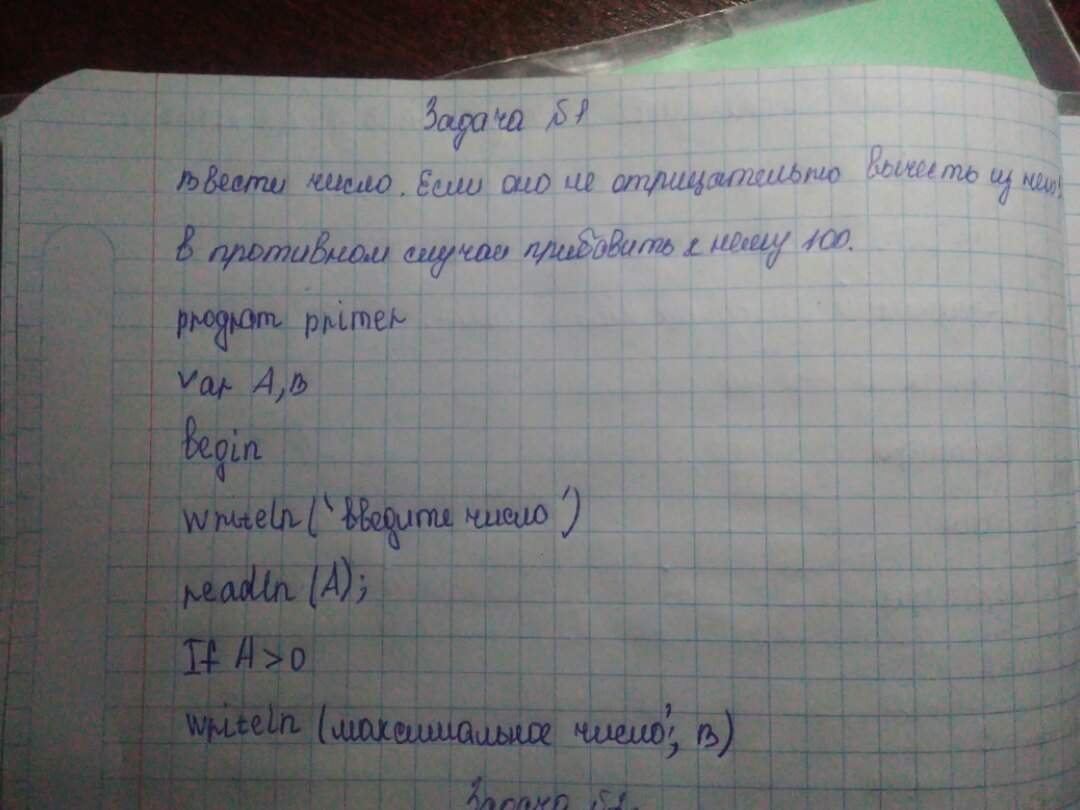 Задача №1
Ввести число. Если оно не отрицательно вычесть из него
В противном случаи прибавить к нему 100.
program primer
var A,B
begin
writeln('введите число')
readln(A);
If A>0
writeln(максимальное число', B)
Задача №2